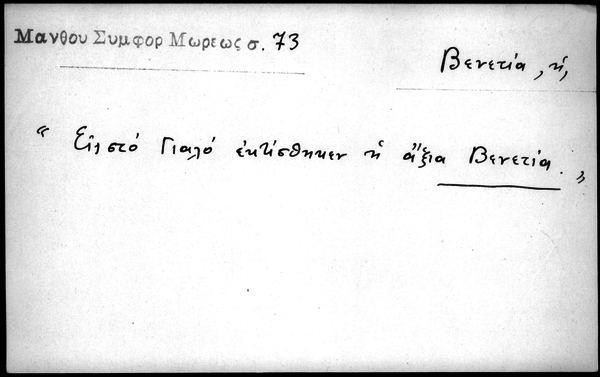 Μανθου Συμφορ Μωρεως σ. 73
Βενετία, ἡ,
“ Εἰς στό Γιαλό ἐκτίσθηκεν ἡ ἄξια Βενετία. „